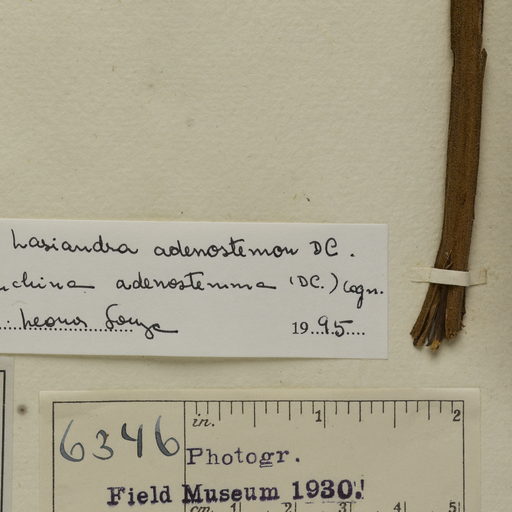 Lasiandra adenostemon DC.
china adenostemma (DC.) Cogn.
Leonor Souza
1995
in. 1 2
6346
Photogr.
Field Museum 1930!
cm. 1 2 3 4 5